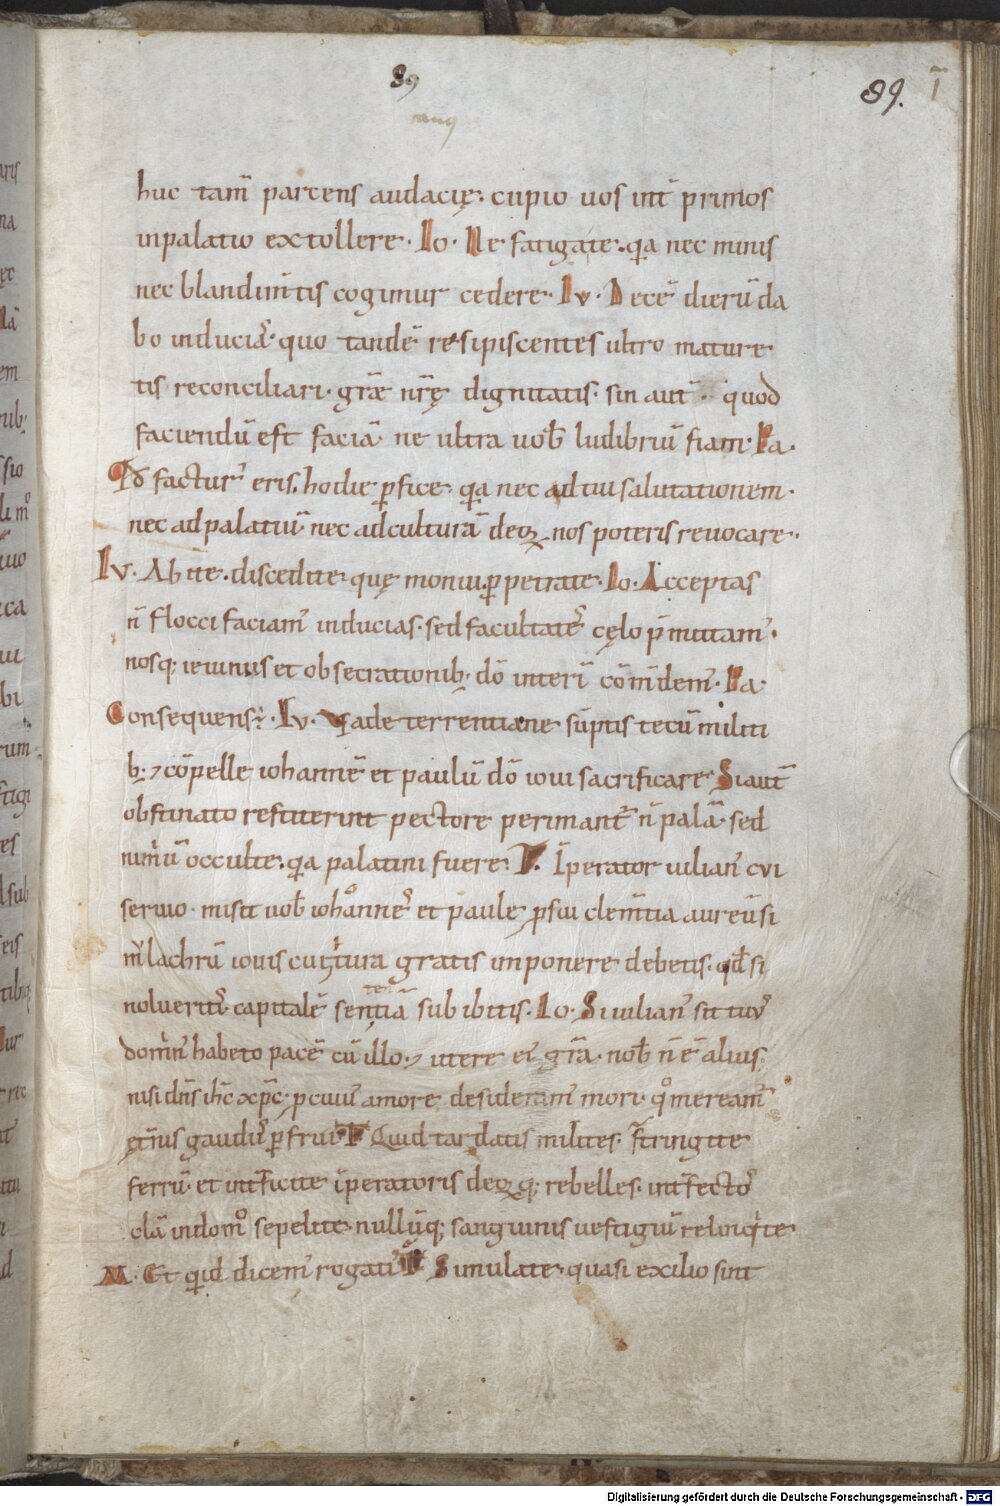 89
89.
huc tam̄ parcens audacię· cupio uos int̄ primos
inpalatio extollere· Io· Ne fatigate· qa nec minis
nec blandim̄tis cogimur cedere· Iv· Decē dierū da
bo inducias· quo tandē resipiscentes ultro mature
tis reconciliari· grae nr̄ę dignitatis· sin aut̄· quod
faciendū est faciā ne ultra uob̄ ludibriū fiam· Pa·
Qd̄ factur᾿ eris, hodie ꝑfice· qa nec ad tui salutationem·
nec adpalatiū nec adculturā deoꝝ nos poteris reuocare·
Iv· Abite· discedite quę monui ꝑpetrate· Io· Acceptas
n̄ flocci faciam᾿ inducias· sed facultatē cęlo p̄mittam᾿·
nosq; ieiuniis et obsecrationib; dō interī cōm̄dem᾿· Pa·
Consequens ē· Iv· Vade terrentiane sūptis tecū militi
b; ⁊ cōpelle iohannē et paulū dō ioui sacrificare· Si aut̄
obstinato restiterint pectore perimant᾿ n̄ palā· sed
nimiū occulte· qa palatini fuere· T· Īperator iulian᾿ cui
seruio· misit uob̄ iohannes et paule ꝓ sui clem̄tia aureū si
m̄lachrū iouis cui tura gratis imponere debetis· qd̄ si
nolueritis· capitalē sententiā subibitis· Io· Si iulian᾿ sit tuus
domin᾿ habeto pacē cū illo· ⁊ utere ei᾿ grā· nob̄ n̄ ē alius
nisi dn̄s ih̄c xp̄c· ꝓ cuius amore desideram᾿ mori· qo meream᾿
ęt̄nis gaudiis ꝑfrui· T· Quid tardatis milites· stringite
ferrū· et int̄ficite īperatoris deoꝝq; rebelles· int̄fectos
clā in domo sepelite· nullūq; sanguinis uestigiū relinqite·
M· Et qid dicem᾿ rogati· T· Simulate· quasi exilio sint
Digitalisierung gefördert durch die Deutsche Forschungsgemeinschaft - DFG